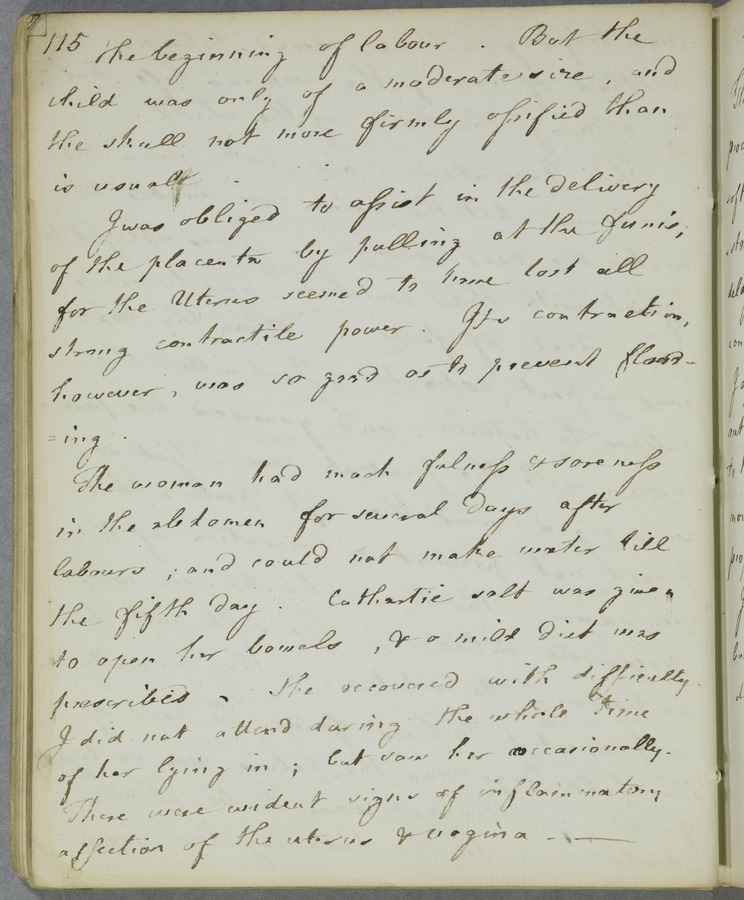 115 the beginning of labour. But the
child was only of a moderate size, and
the skull not more firmly ossified than
is usual
I was obliged to assist in the delivery
of the placenta by pulling at the funis;
for the Uterus seemed to have lost all
strong contractile power. Its contraction,
however, was so good as to prevent flood-
=ing.
The woman had much fulness & soreness
in the abdomen for several days after
labours; and could not make water till
the fifth day. Cathartic salt was given
to open her bowels, & a mild diet was
prescribed. She recovered with difficulty.
I did not attend during the whole time
of her lying in; but saw her occasionally.
There were evident signs of inflammatory
affection of the uterus & vagina - —